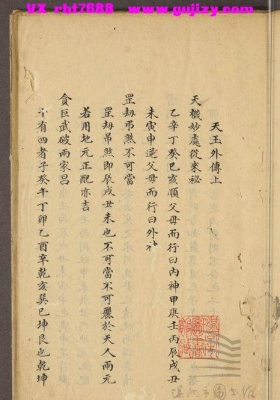 VX rbf7688
www.gujizy.com
天玉外傳上
天機妙處從來秘
乙辛丁癸巳亥順父母而行曰內神甲庚壬丙辰戌丑
未寅申逆父母而行曰外
罡刼弔煞不可當
罡刼弔煞即辰戌丑未也不可當不可羼於天人兩元
若用地元正配亦吉
貪巨武破兩家昌
有四者子癸午丁卯乙酉辛乾亥巽巳坤艮也乾坤